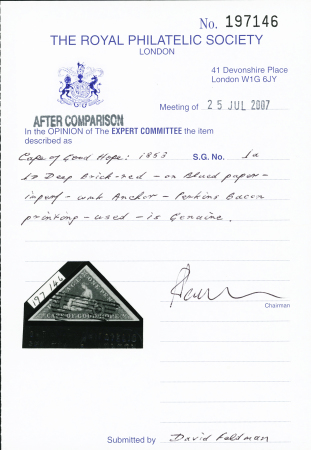 No. 197146
THE ROYAL PHILATELIC SOCIETY
LONDON
41 Devonshire Place
London W1G 6JY
Meeting of 25 JUL 2007
AFTER COMPARISON
In the OPINION of The EXPERT COMMITTEE the item
described as
Cape of Good Hope: 1853 S.G. No. 1a
1d Deep Brick-red - on Blued paper -
imperf - wmk Anchor - Perkins Bacon
printing - used - is Genuine.
197146
CAPE OF GOOD HOPE
Chairman
Submitted by David Feldman